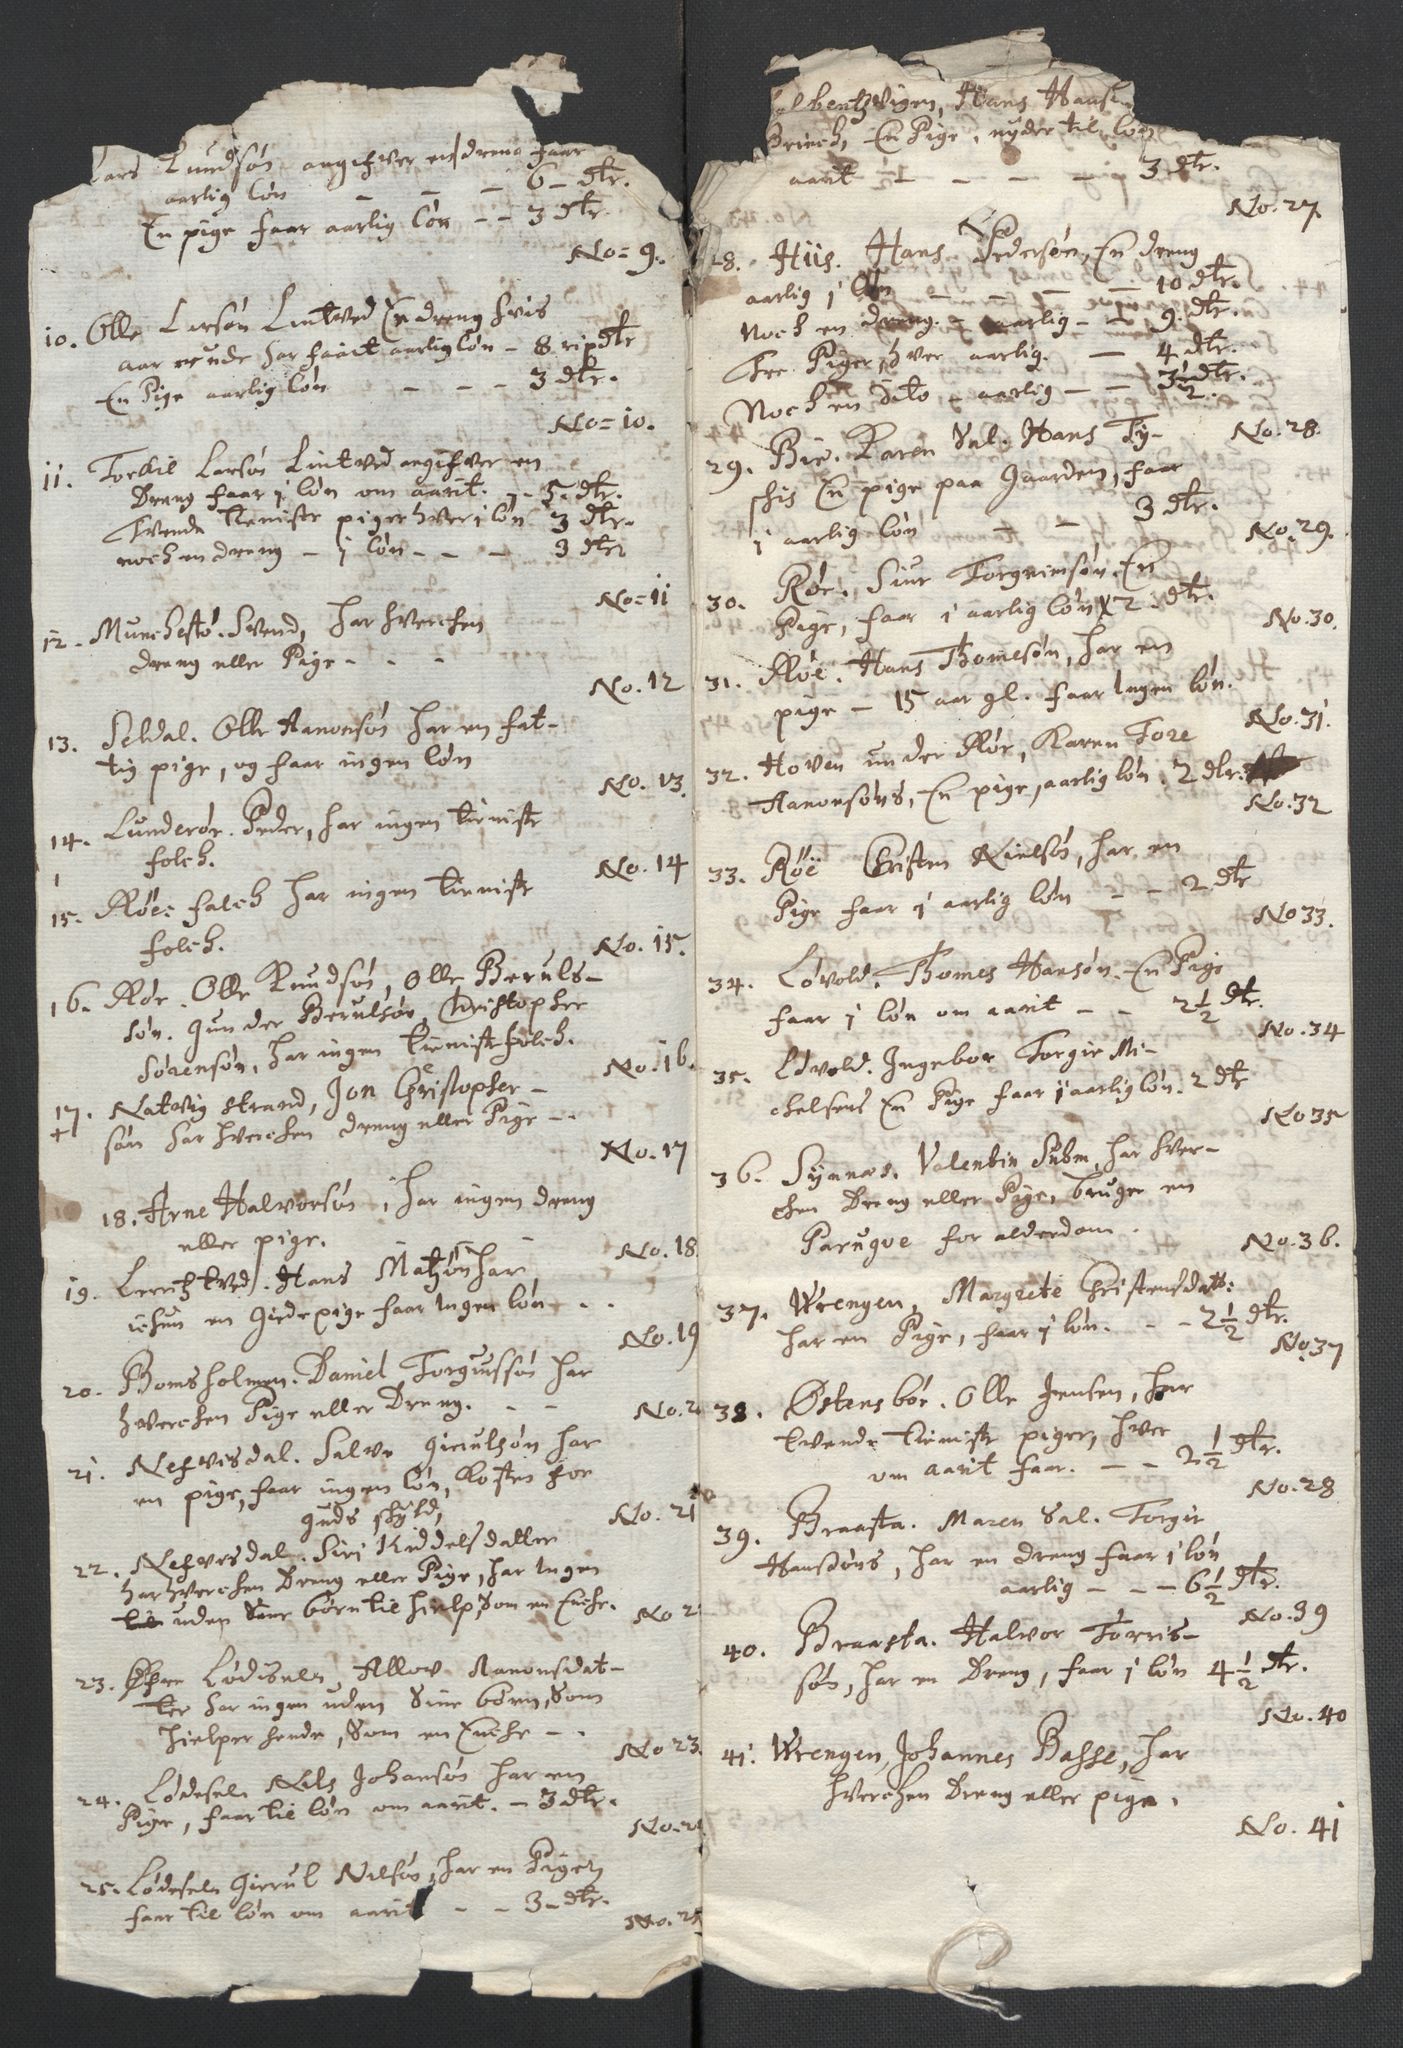 Lars Lundsøn angifver en dreng faar
aarlig løn — — — 6 – dlr.
En pige faar aarlig løn – – 3 dlr.
No = 9.
10. Olle Larsøn Lintved En dreng hvis
aar unde har faait aarlig løn – 8 ripdlr
En Pige aarlig løn – – – 3 dlr.
No = 10.
11. Torkil Larsøn Lintved angifver en
Dreng faar j løn om aarit. – 5 dlr.
Tvende tieniste piger hver i løn 3 dlr.
noch en dreng – j løn – – – 3 dlr.
No = 11
12. Munchestø. Svend, har hverchen
dreng eller Pige – – –
No. 12
13. Seldal. Olle Aanonsøn har en fat-
tig pige, og faar ingen løn
No. 13.
14. Lunderør. Peder, har ingen tieniste
folch.
No. 14
15. Røe: falch har ingen tieniste
folch.
No. 15.
16. Rør. Olle Knudsøn, Olle Beruls-
søn. Gunder Berulsøn, Christopher
Sørensøn, har ingen tieniste folch.
No. 16.
17. Natvig strand, Jon Christopher-
søn har hverchen dreng eller Pige – –
No. 17
18. Arne Halvorsøn, har ingen dreng
eller pige.
No. 18
19. Lerchtved. Hans Matzøn har
ichun en giedepige faar Ingen løn – . .
No. 19
20. Bomsholmen. Daniel Torgiussøn har
hverchen Pige eller Dreng. – –
No. 2
21. Nefvisdal. Salve Gieiulsøn har
en pige, faar ingen løn, Kosten for
Guds skyld,
No. 21
22. Nefvisdal. Siri Kiddelsdatter
har hverchen Dreng eller Pige, har Ingen
uden Sine børn til hielp, Som en Enche.
No 2
23. Øfre Lødisels Allov Aanonsdat-
ter har ingen uden Sine børn, Som
hielper hende, Som en Enche – .
No 23.
24. Lødesels Nils Johansøn har en
Pige, faar til løn om aarit. – 3 dlr.
No. 2
25. Lødesels Gierul Nilsøn, har en Pige
faar til løn om aarit – – 3 – dlr.
No. 25
Hans Hansøn
Brinch, En Pige, nyder til løn
aarit – – – – 3 dlr.
No. 27
28. Hiis. Hans Pedersøn, En dreng
aarlig j løn – – – – 10 dlr.
Noch en dreng. – aarlig – – 9. dlr.
Tre Piger, hver aarlig. – 4 dlr.
Noch en dito – aarlig – – 3 1/2 dlr.
No. 28.
29. Bie. Karen Sal. Hans Ty-
chis En pige paa Gaarden, faar
j aarlig løn – – 3 dlr.
No. 29.
30. Rør. Siur Torgrimsøn. En
Pige, faar i aarlig løn 2. dlr.
No. 30.
31. Røe. Hans Thomesøn, har en
pige – 15 aar gl. faar Ingen løn.
No. 31.
32. Hoven under Rør, Karen Tore
Aanonsøns, En pige, aarlig løn. 2 dlr.
No. 32
33. Røe Christen Nielsøn, har en
Pige faar j aarlig løn – – 2 dlr
No 33.
34. Løvold. Thomes Hansøn. En Pige
faar j løn om aarit – – 2 1/2 dlr.
No. 34
35. Løvold. Ingebor Torgir Mi-
chelsens En Pige faar j aarlig løn. 2 dlr
No 35
36. Synnæs. Valentin Subm, har hver-
chen Dreng eller Pige, bruger en
Parugve for alderdom.
No. 36.
37. Wrengen, Margrete Christensdatt:
har en Pige, faar j løn. – – 2 1/2 dlr.
No. 37
38. Østensbør. Olle Jensen, har
tvende tieniste piger, hver
om aarit faar. – – 2 1/2 dlr.
No. 28
39. Braasta. Maren Sal. Torgir
Hansøns, har en dreng faar j løn
aarlig – – – 6 1/2 dlr.
No. 39
40. Braasta. Halvor Torris-
søn, har en Dreng, faar j løn 4 1/2 dlr.
No. 40
41. Wrengen, Johannes Basse, har
hverchen Dreng eller pige.
No. 41